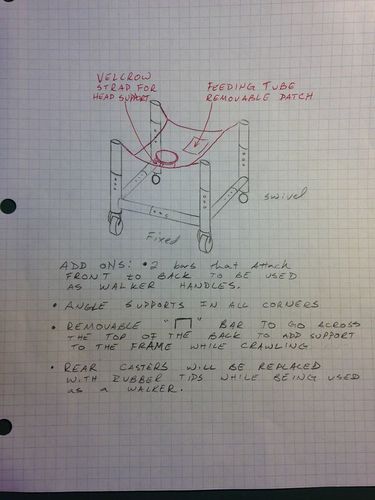 VELCROW
STRAP FOR
HEAD SUPPORT
FEEDING TUBE
REMOVABLE PATCH
SWIVEL
Fixed
ADD ONS: • 2 bars that Attach
FRONT to BACK TO BE USED
AS WALKER HANDLES.
• ANGLE SUPPORTS IN ALL CORNERS
• REMOVABLE " " BAR TO GO ACROSS
THE TOP OF THE BACK TO ADD SUPPORT
TO THE FRAME WHILE CRAWLING
• REAR CASTERS WILL BE REPLACED
WITH RUBBER TIPS WHILE BEING USED
AS A WALKER.